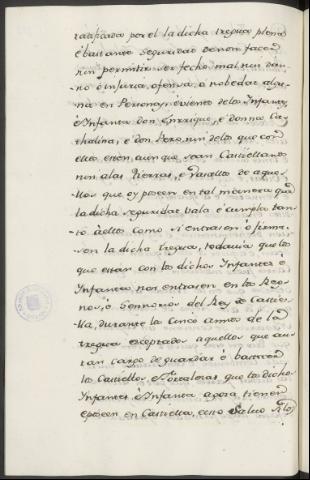 ratificada por el la dicha tregua plena
è bastante seguridad de non facer
nin permitir ser fecho mal, nin dan-
no ò injuria, ofensa, ò nobedad algu-
na en Personas, è vienes de los Infantes,
è Infanta don Enrrique, è donna Ca-
thalina, è don Pero, nin de los que con
ellos estan, aun que sean Castellanos
non a las tierras, è vasallos de aque-
llos que oy poseen en tal manera que
la dicha seguridad vala è cumpla tan-
to à ellos como si entrasen ò firma-
sen la dicha tregua, todavia que los
que estan con los dichos Infantes è
Infanta non entrasen en los Rey-
nos, ò Sennorios del Rey de Castie-
lla, durante los cinco annos de la
tregua exceptados aquellos que au-
ran cargo de guardar ò bastecer
los Castiellos è Fortalezas que los dichos
Infantes è Infanta agora tienen
è poseen en Castiella, esso salvo si los